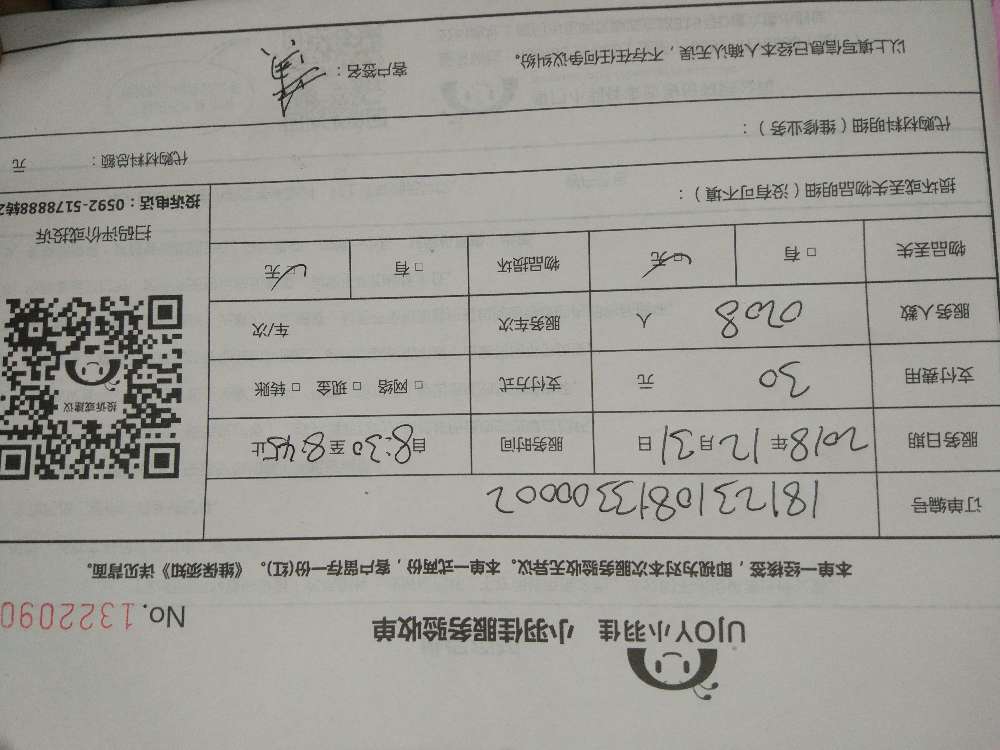 UJOY小羽佳 小羽佳服务验收单
No.1322090
本单一经核签，即视为对本次服务验收无异议。本单一式两份，客户留存一份(红)。《维保须知》详见背面。
订单编号 18123108133000002
服务日期 2018年12月31日 服务时间 自8:30至8:45止
支付费用 30 元 支付方式 □网络 □现金 □转账
服务人数 0208 人 服务车次 车/次
物品丢失 □有 ☑无 物品损坏 □有 ☑无
投诉或建议
扫码评价或投诉
投诉电话：0592-5178888转2
损坏或丢失物品明细（没有可不填）：
代购材料明细（维修业务）：
代购材料总额： 元
以上填写信息已经本人确认无误，不存在任何争议纠纷。
客户签名：